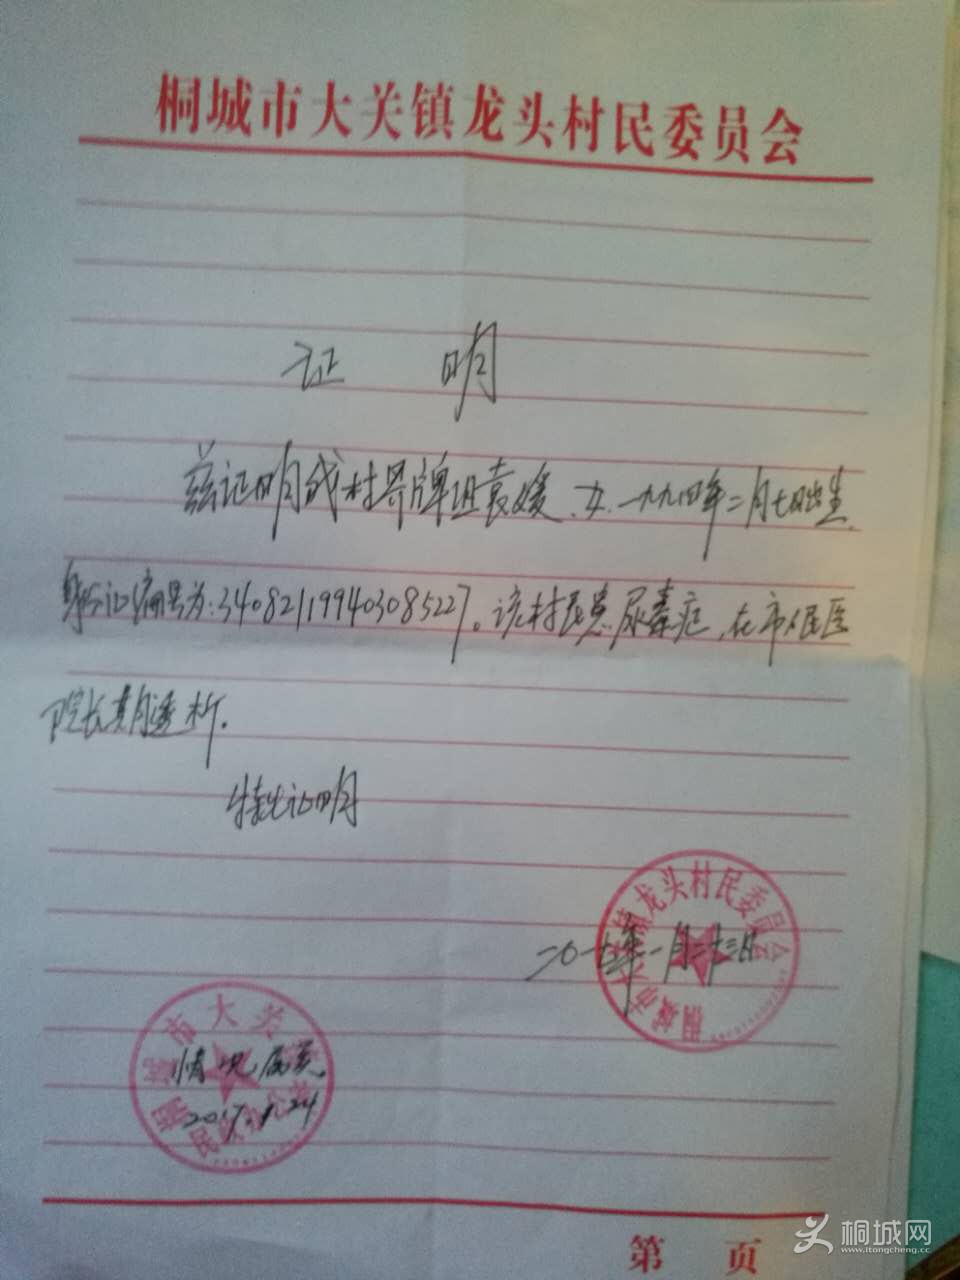 桐城市大关镇龙头村民委员会
证 明
兹证明我村界牌组袁媛、女、一九九四年二月七日出生.
身份证编号为:340821199403085227。该村民患尿毒症,在市人民医
院长期透析.
特此证明
桐城市大关镇龙头村民委员会
二0一七年一月二十三日
桐城市大关镇
情况属实.
2017.1.24
民政办公
第 页
桐城网
www.itongcheng.cc